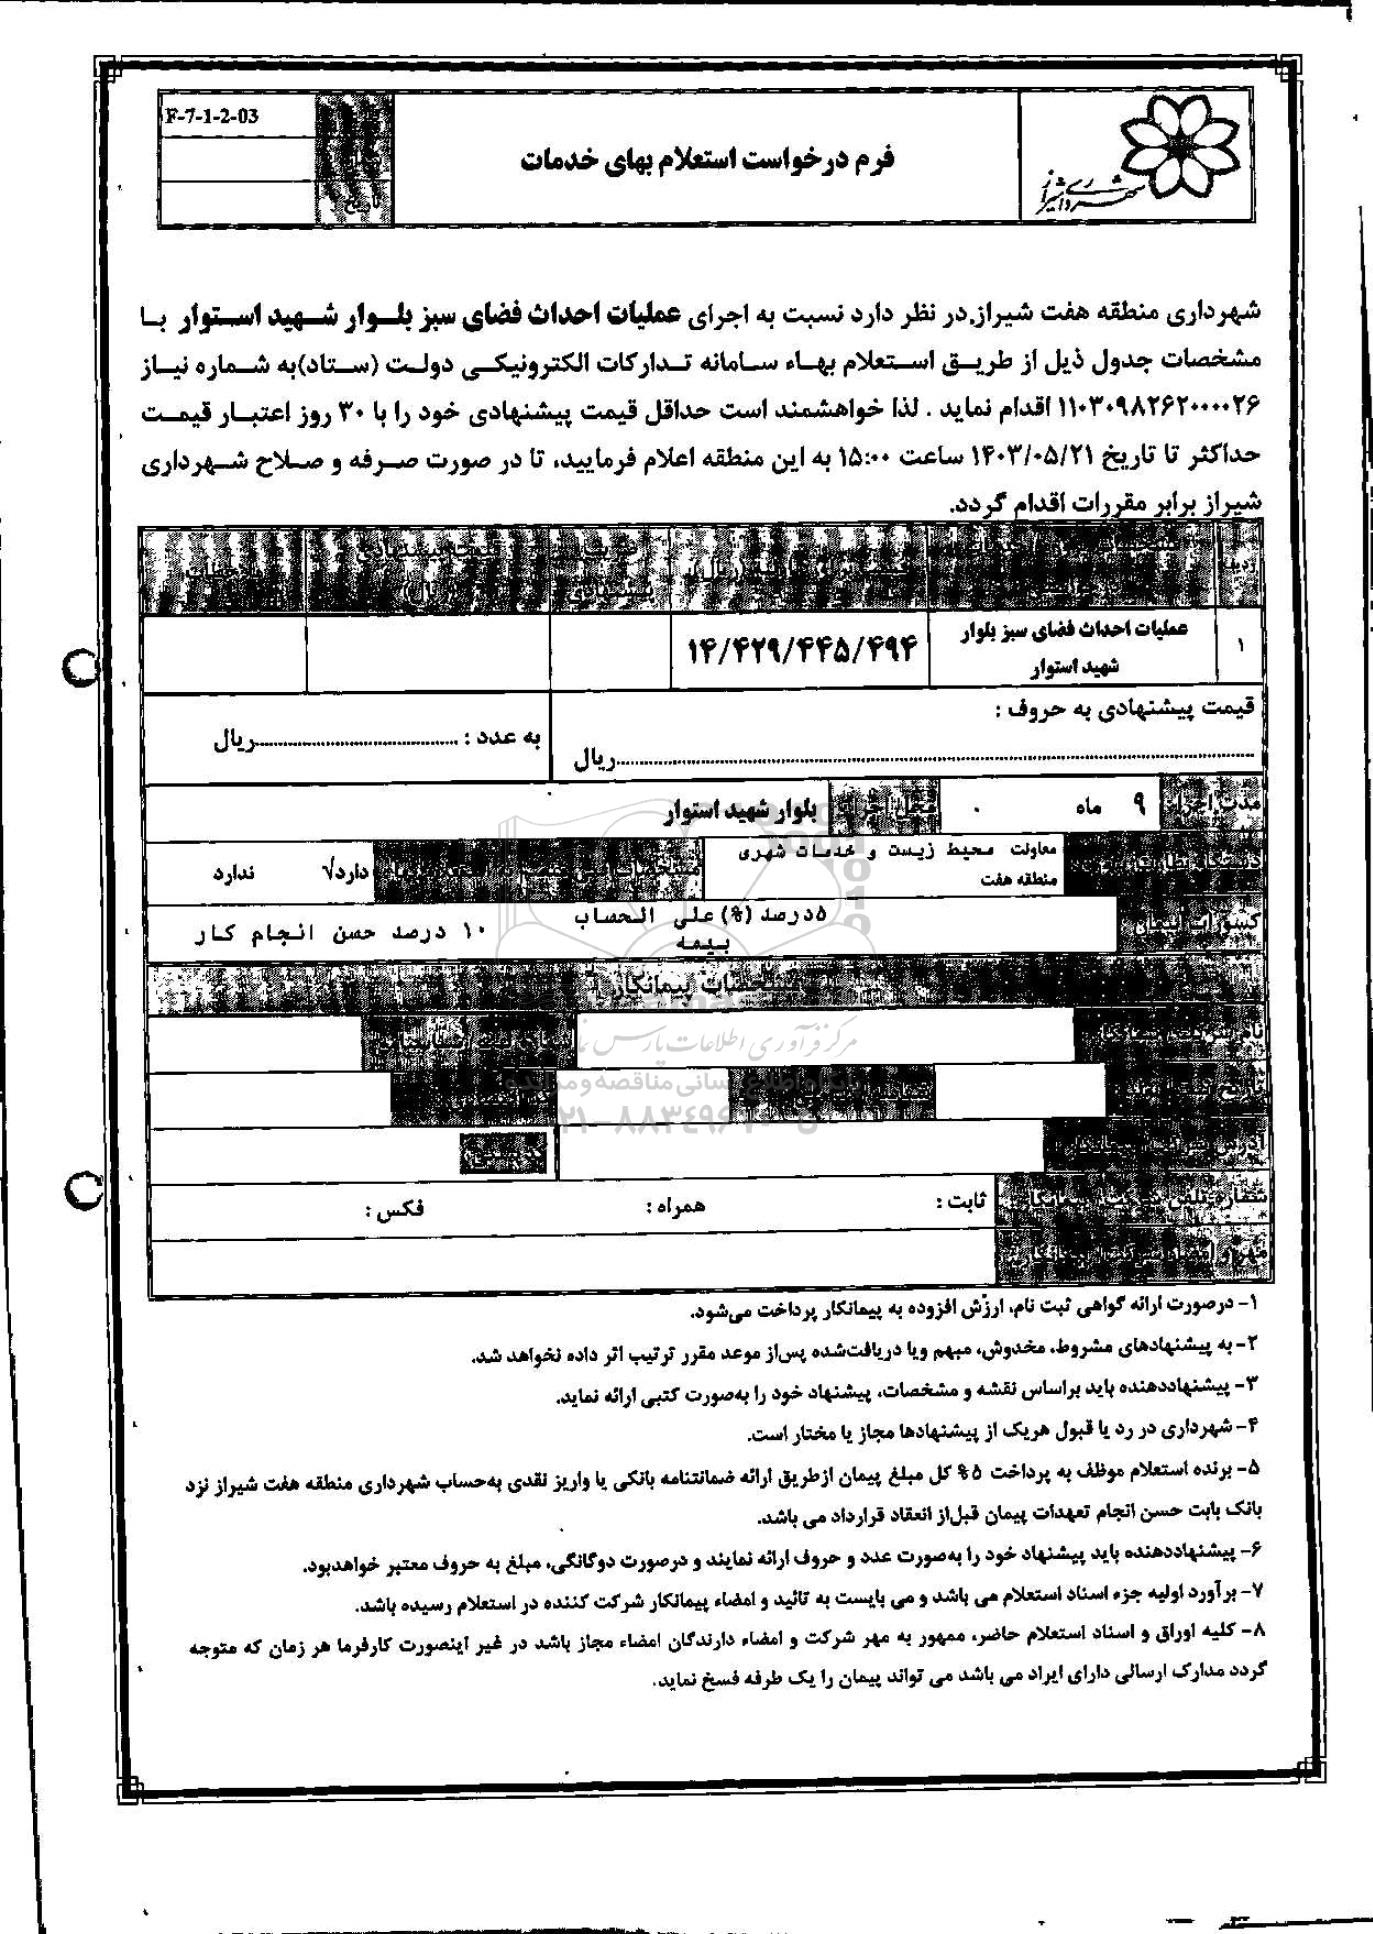 F-7-1-2-03
تاریخ
فرم درخواست استعلام بهای خدمات
شهرداری شیراز
شهرداری منطقه هفت شیراز,در نظر دارد نسبت به اجرای عملیات احداث فضای سبز بلوار شهید استوار با
مشخصات جدول ذیل از طریق استعلام بهاء سامانه تدارکات الکترونیکی دولت (ستاد)به شماره نیاز
۱۱۰۳۰۹۸۲۶۲۰۰۰۰۲۶ اقدام نماید . لذا خواهشمند است حداقل قیمت پیشنهادی خود را با ۳۰ روز اعتبار قیمت
حداکثر تا تاریخ ۱۴۰۳/۰۵/۲۱ ساعت ۱۵:۰۰ به این منطقه اعلام فرمایید، تا در صورت صرفه و صلاح شهرداری
شیراز برابر مقررات اقدام گردد.
ردیف
۱
عملیات احداث فضای سبز بلوار
شهید استوار
۱۴/۴۲۹/۴۴۵/۴۹۴
قیمت پیشنهادی به حروف :
..........ریال
به عدد : ..........ریال
مدت اجرا:
۹ ماه
محل اجرا:
بلوار شهید استوار
دستگاه نظارت
معاونت محیط زیست و خدمات شهری
منطقه هفت
دارد√ ندارد
کسورات پیمان
۵درصد (%) علی الحساب
بیمه
۱۰ درصد حسن انجام کار
مشخصات پیمانکار
مرکز فرآوری اطلاعات پارس نماد
پایگاه اطلاع رسانی مناقصه و مزایده
کدپستی:
شماره تلفن شرکت / پیمانکار
ثابت :
همراه :
فکس :
مهر و امضاء شرکت / پیمانکار
۱- درصورت ارائه گواهی ثبت نام، ارزش افزوده به پیمانکار پرداخت می‌شود.
۲- به پیشنهادهای مشروط، مخدوش، مبهم ویا دریافت‌شده پس‌از موعد مقرر ترتیب اثر داده نخواهد شد.
۳- پیشنهاددهنده باید براساس نقشه و مشخصات، پیشنهاد خود را به‌صورت کتبی ارائه نماید.
۴- شهرداری در رد یا قبول هریک از پیشنهادها مجاز یا مختار است.
۵- برنده استعلام موظف به پرداخت ۵% کل مبلغ پیمان ازطریق ارائه ضمانتنامه بانکی یا واریز نقدی به‌حساب شهرداری منطقه هفت شیراز نزد
بانک بابت حسن انجام تعهدات پیمان قبل‌از انعقاد قرارداد می باشد.
۶- پیشنهاددهنده باید پیشنهاد خود را به‌صورت عدد و حروف ارائه نمایند و درصورت دوگانگی، مبلغ به حروف معتبر خواهدبود.
۷- برآورد اولیه جزء اسناد استعلام می باشد و می بایست به تائید و امضاء پیمانکار شرکت کننده در استعلام رسیده باشد.
۸- کلیه اوراق و اسناد استعلام حاضر، ممهور به مهر شرکت و امضاء دارندگان امضاء مجاز باشد در غیر اینصورت کارفرما هر زمان که متوجه
گردد مدارک ارسالی دارای ایراد می باشد می تواند پیمان را یک طرفه فسخ نماید.